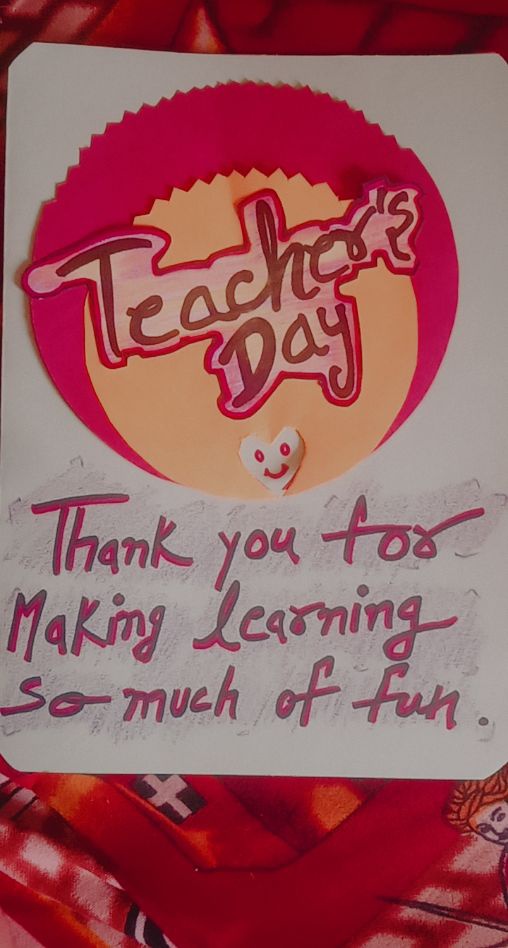 Teacher's
Day
Thank you for
Making learning
so much of fun.